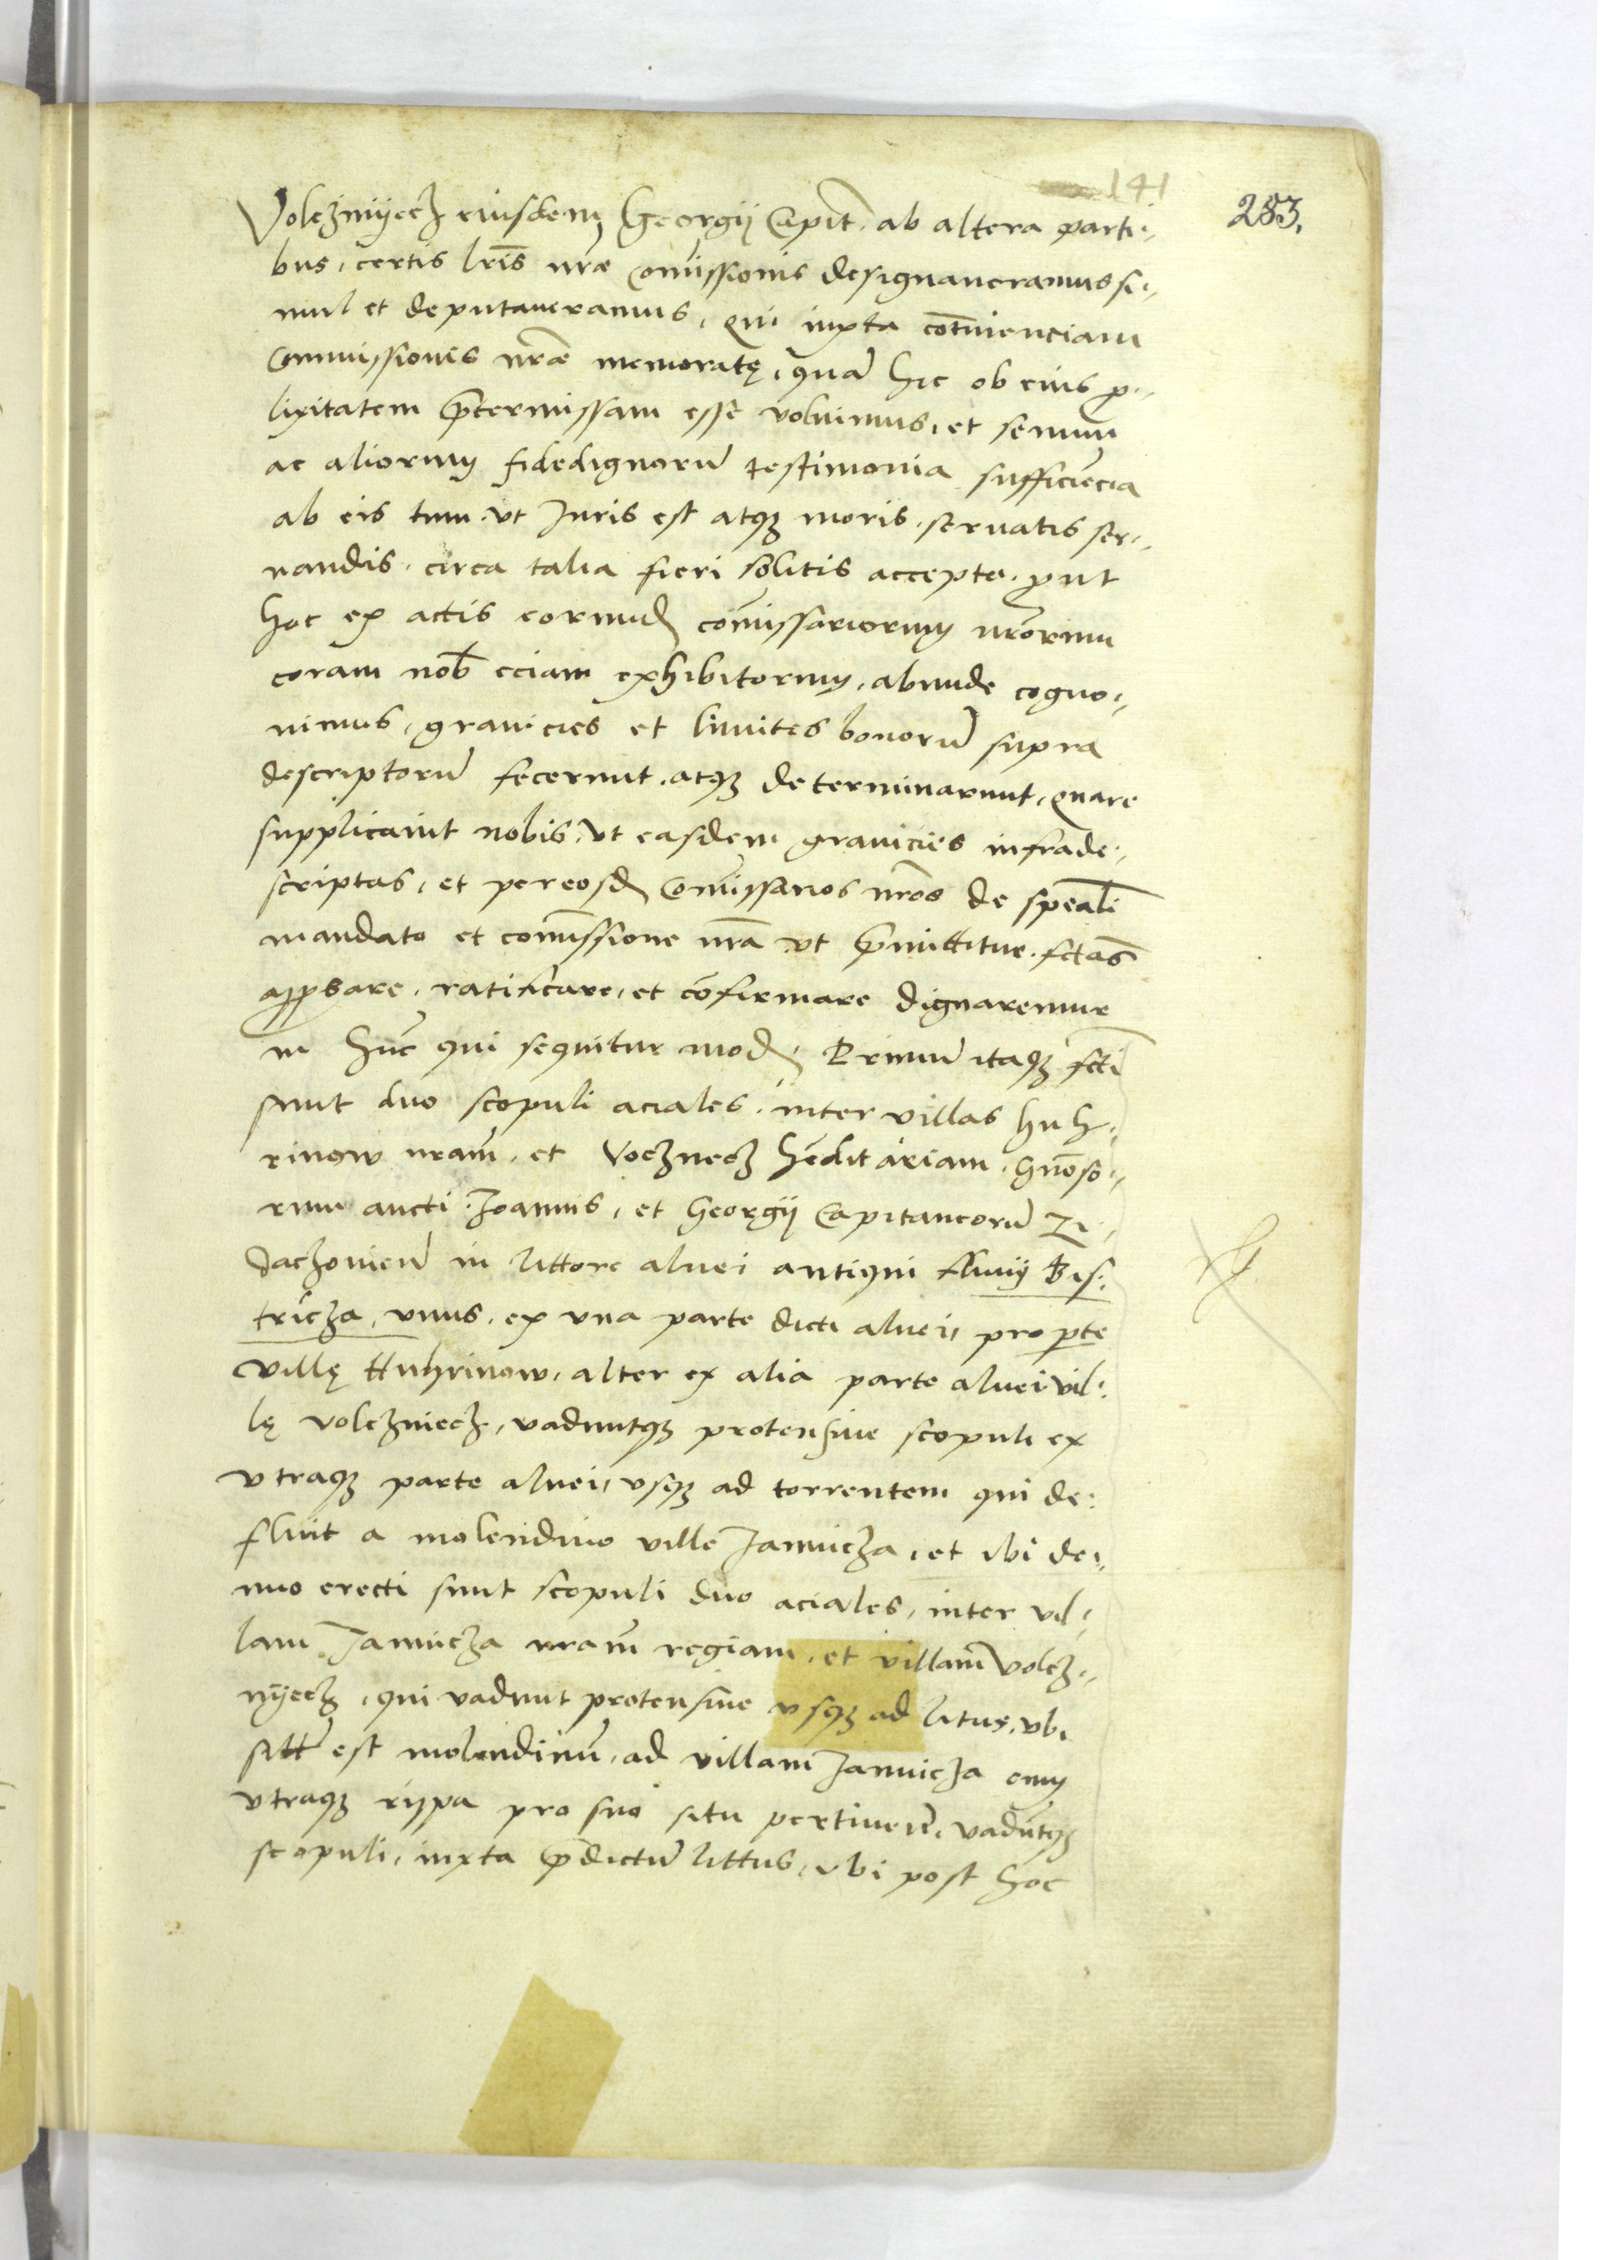 141
283.
Volczniyecz eiusdem Georgij Capit̃. ab altera parti-
bus, certis lr̃is nr̃ae Com̃issionis designaueramus si-
mul et deputaueramus, Qui iuxta cot̃inenciam
Commissionis nr̃ae memoratę, quã hic ob eius p-
lixitatem p̃termissam esse voluimus, et senum
ac aliorum fidedignorũ testimonia sufficiẽcia
ab eis tum vt Iuris est atq3 moris, seruatis ser-
uandis, circa talia fieri solitis accepta, prout
hoc ex actis eorund̃ com̃issariorum nr̃orum
coram nob̃ eciam exhibitorum, abunde cogno-
uimus, granicies et limites bonorũ supra
descriptorũ fecerunt, atq3 determinarunt, Quare
supplicaiut nobis, vt easdem granicies infrade-
scriptas, et per eosd̃ Com̃issarios nr̃os de speali
mandato et com̃issione nr̃a vt p̃mittitur, fctas
approbare, ratificare, et cõfirmare dignaremur
in hũc qui sequitur mod̃, Primũ itaq3 fcti
sunt duo scopuli aciales, inter villas huh-
rinow nr̃am, et Voczniecz hẽditariam, Gñoso-
rum aucti Ioannis, et Georgij Capitaneorũ Zi-
daczouieñ in littore aluei antiqui fluuij Bis-
tricza, vnus, ex vna parte dicti aluei, pro p̱te
villę Huhrinow, alter ex alia parte aluei vil-
lę volczniecz, vaduntq3 protensiue scopuli ex
vtraq3 parte aluei, vsq3 ad torrentem qui de-
fluit a molendino ville Iamnicza, et ibi de-
nuo erecti sunt scopuli duo aciales, inter vil-
lam Iamnicza nr̃am regiam, et villam̃ Volcz-
nyecz, qui vadunt protensiue vsq3 ad litus, vbi
sitũ est molendinũ, ad villam Iamnicza cum
vtraq3 rippa pro suo situ pertineñ, vadũtq3
scopuli, iuxta p̃dictũ littus, vbi post hoc